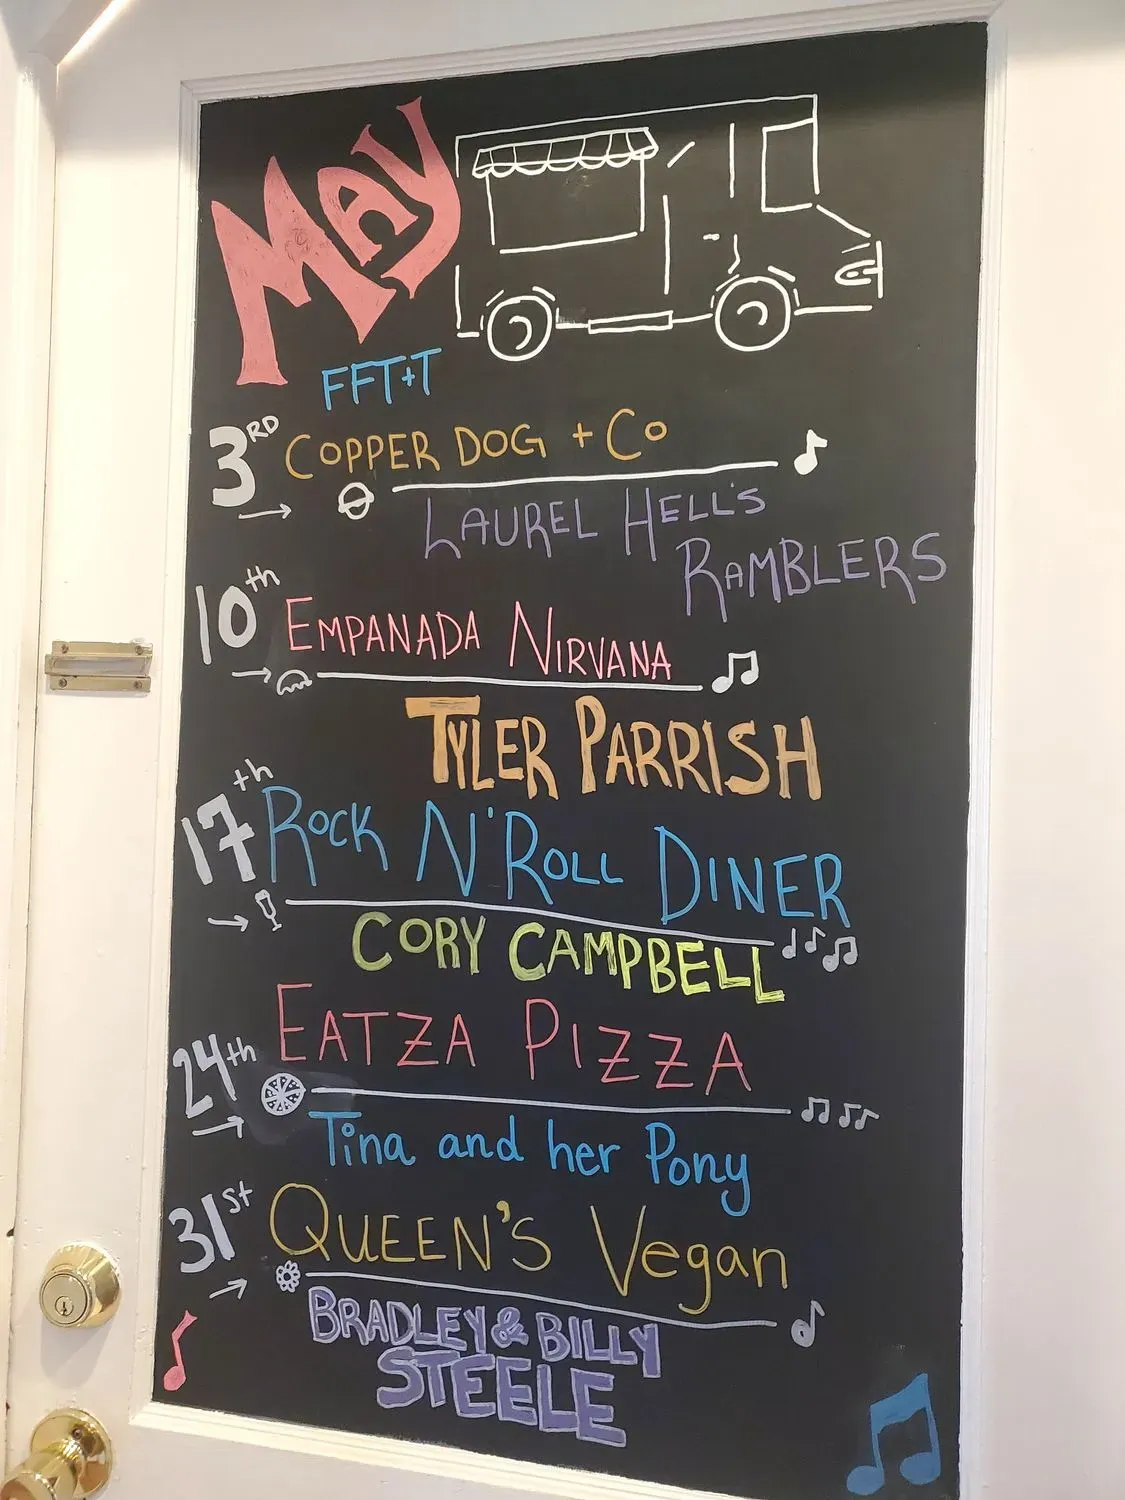 May
FFT+T
3RD COPPER DOG + CO
LAUREL HELL'S
RAMBLERS
10th EMPANADA NIRVANA
TYLER PARRISH
17th ROCK N'ROLL DINER
CORY CAMPBELL
24th EATZA PIZZA
Tina and her Pony
31st QUEEN'S Vegan
BRADLEY & BILLY
STEELE